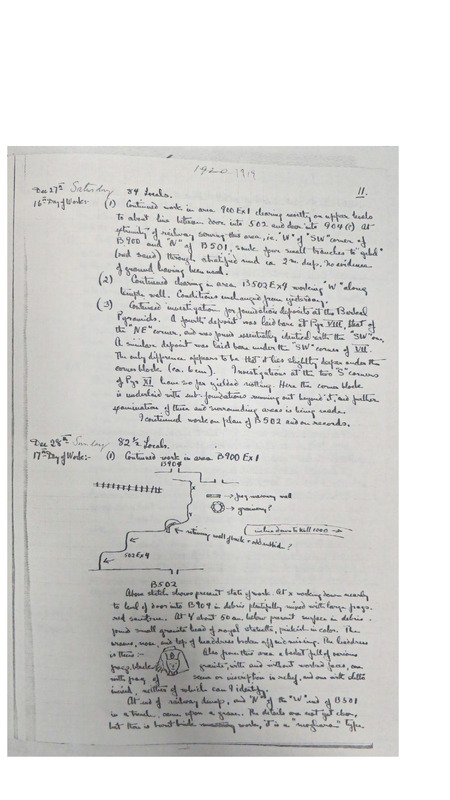 1920 1919
11.
Dec 27th Saturday 84 Locals.
16th Day of Work:- (1) Continued work in area 900 Ex 1 clearing mostly on upper levels
to about line between door into 502 and door into 904 (c) At
of railway serving this area, i.e. "W" of "SW" corner of
B 900 and "N" of B 501, sank four small trenches to "gebel"
(red sand) through stratified mud ca 2 m. deep. No evidence
of ground having been used.
(2) Continued clearing in area B 502 Ex 4 working "W" along
temple wall. Conditions unchanged from yesterday.
(3) Continued investigation for foundation deposits at the Barkal
Pyramids. A fourth deposit was laid bare at Pyr VIII, that of
the "NE" corner, and was found essentially identical with the "SW" one.
A similar deposit was laid bare under the "SW" corner of VII.
The only difference appears to be that it lies slightly deeper under the
corner block (ca. 6 cm). Investigations at the two "S" corners
of Pyr XI have so far yielded nothing. Here the corner block
is underlaid with sub-foundations running out beyond it, and further
examination of these and surrounding areas is being made.
I continued work on plan of B 502 and on records.
Dec 28th Sunday 82 ½ Locals.
17th Day of Work:- (1) Continued work in area B 900 Ex 1
B 904
x
→ frag masonry wall
→ granary?
Y
← retaining wall of rock + rubble?
502 Ex 4
B 502
Above sketch shows present state of work. At x working down nearly
to level of door into B 904 in debris plentifully mixed with large frags.
red sandstone. At Y about 50 cm. below present surface in debris.
found small granite head of royal statuette, pinkish in color. The
uraeus, nose, and top of headdress broken off and missing. The headdress
is thus:- Also from this area a basket full of various
frags. black granite, with and without worked faces, one
with frag of same or inscription in relief, and one with
incised, neither of which can I identify.
At end of railway dump, and "N" of the "W" end of B 501
in a trench, came upon a grave. The details are not yet clear,
but there is burnt brick work, it is a type